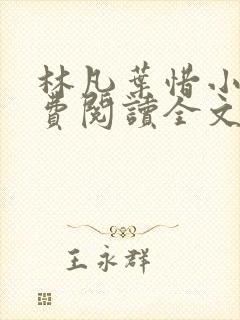 林凡葉惜小
費閱讀全文
王永群